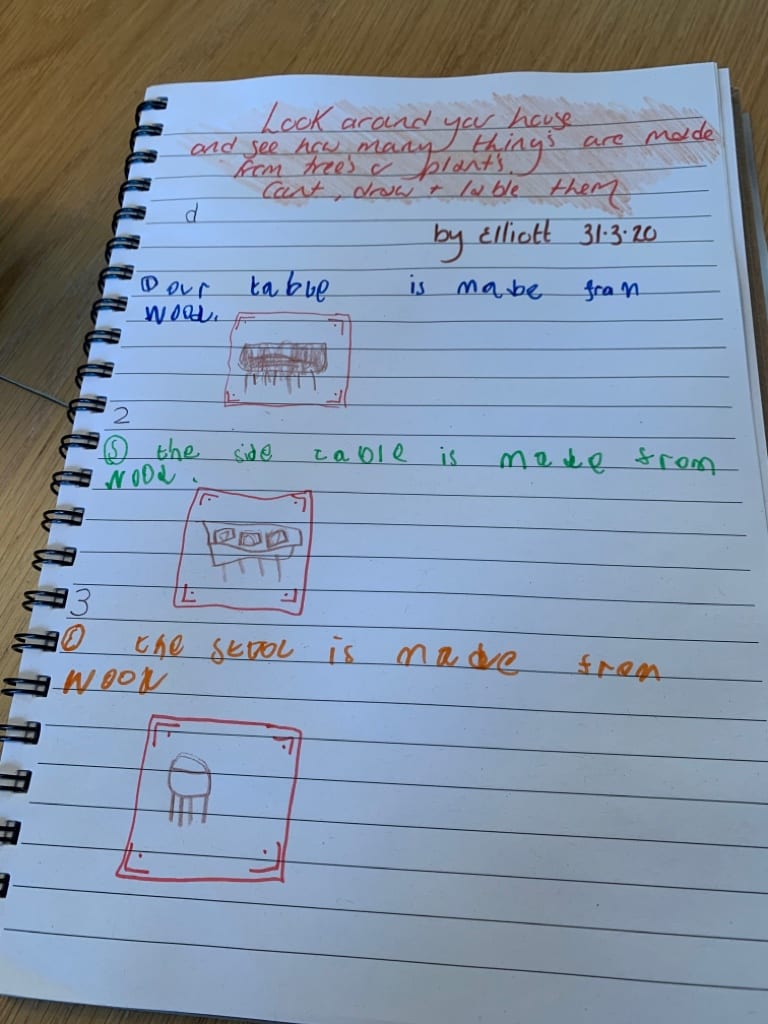 Look around your house
and see how many thing's are made
from tree's & plant's.
Count, draw + lable them
d
by Elliott 31.3.20
① our table is mabe fran
wood.
2
⑤ the side table is made from
wood.
3
① the stool is made from
wood